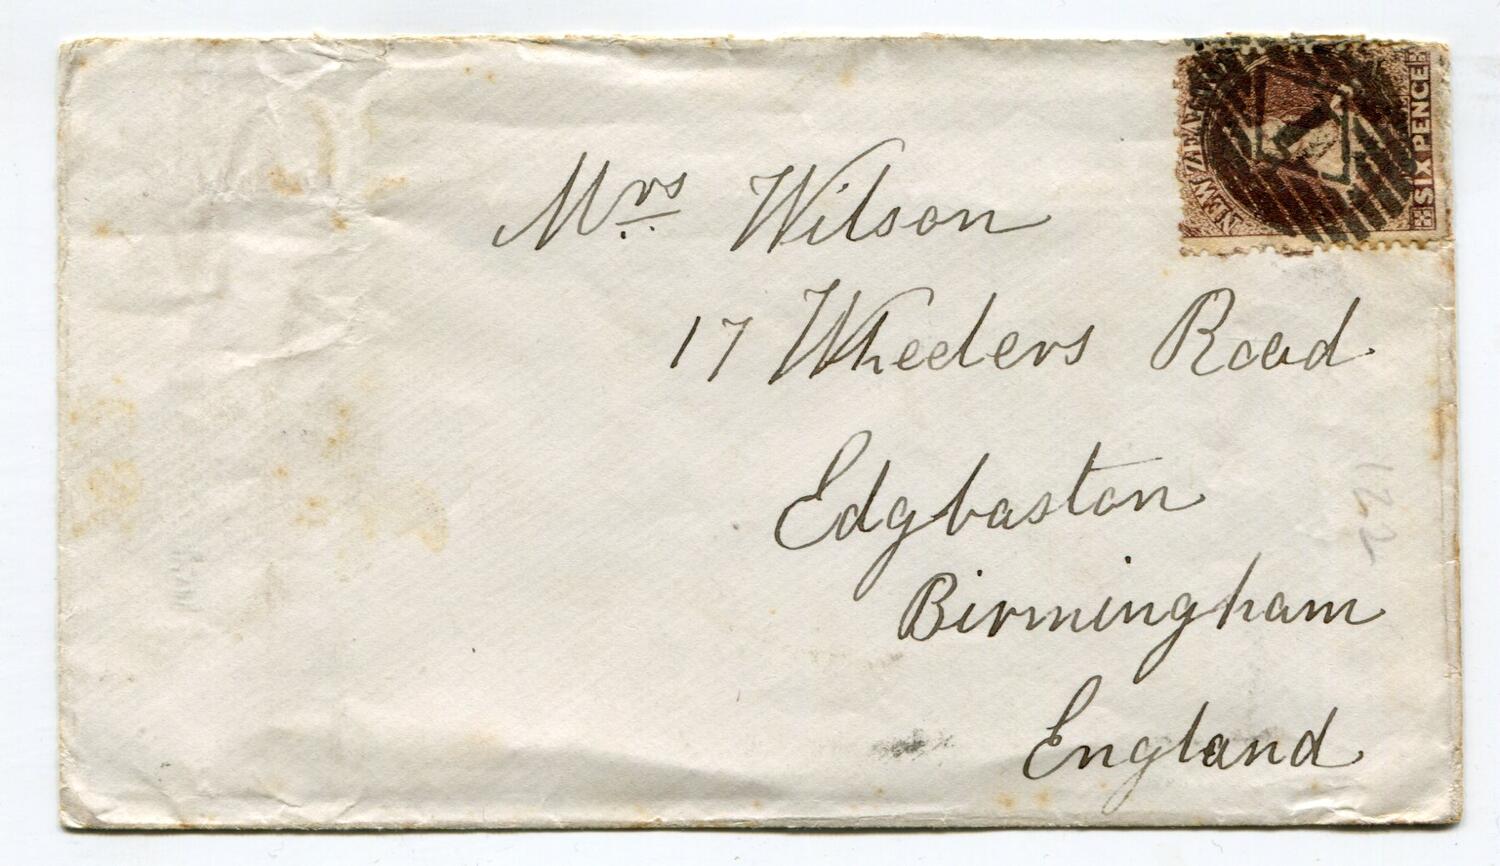 NEW ZEALAND
SIX PENCE
Mrs Wilson
17 Wheelers Road
Edgbaston
Birmingham
England
122